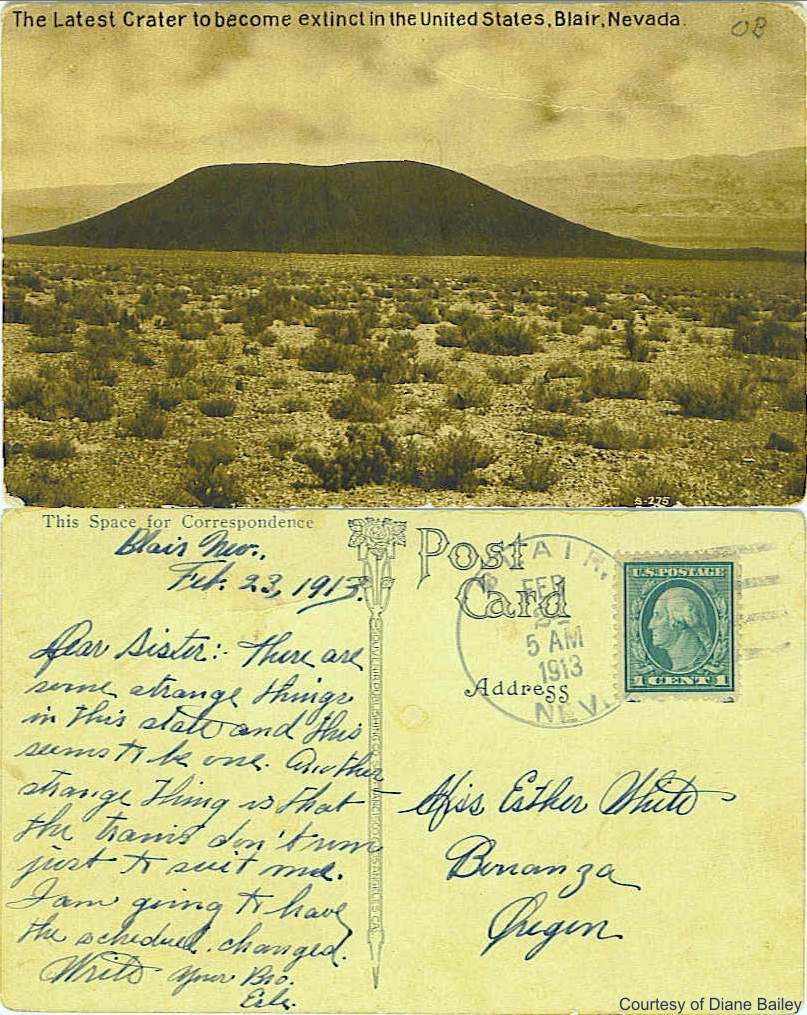 The Latest Crater to become extinct in the United States, Blair, Nevada.
OB
S-275
This Space for Correspondence
Blair Nev.,
Feb. 23, 1913.
Dear Sister:- There are
some strange things
in this state and this
seems to be one. Another
strange thing is that
the trains don't run
just to suit me.
I am going to have
the schedule changed.
Write Your Bro.
Post
Card
BLAIR,
FEB
5 AM
1913
NEV.
U.S. POSTAGE
1 CENT 1
Address
Miss Esther White
Bonanza
Oregon
Courtesy of Diane Bailey